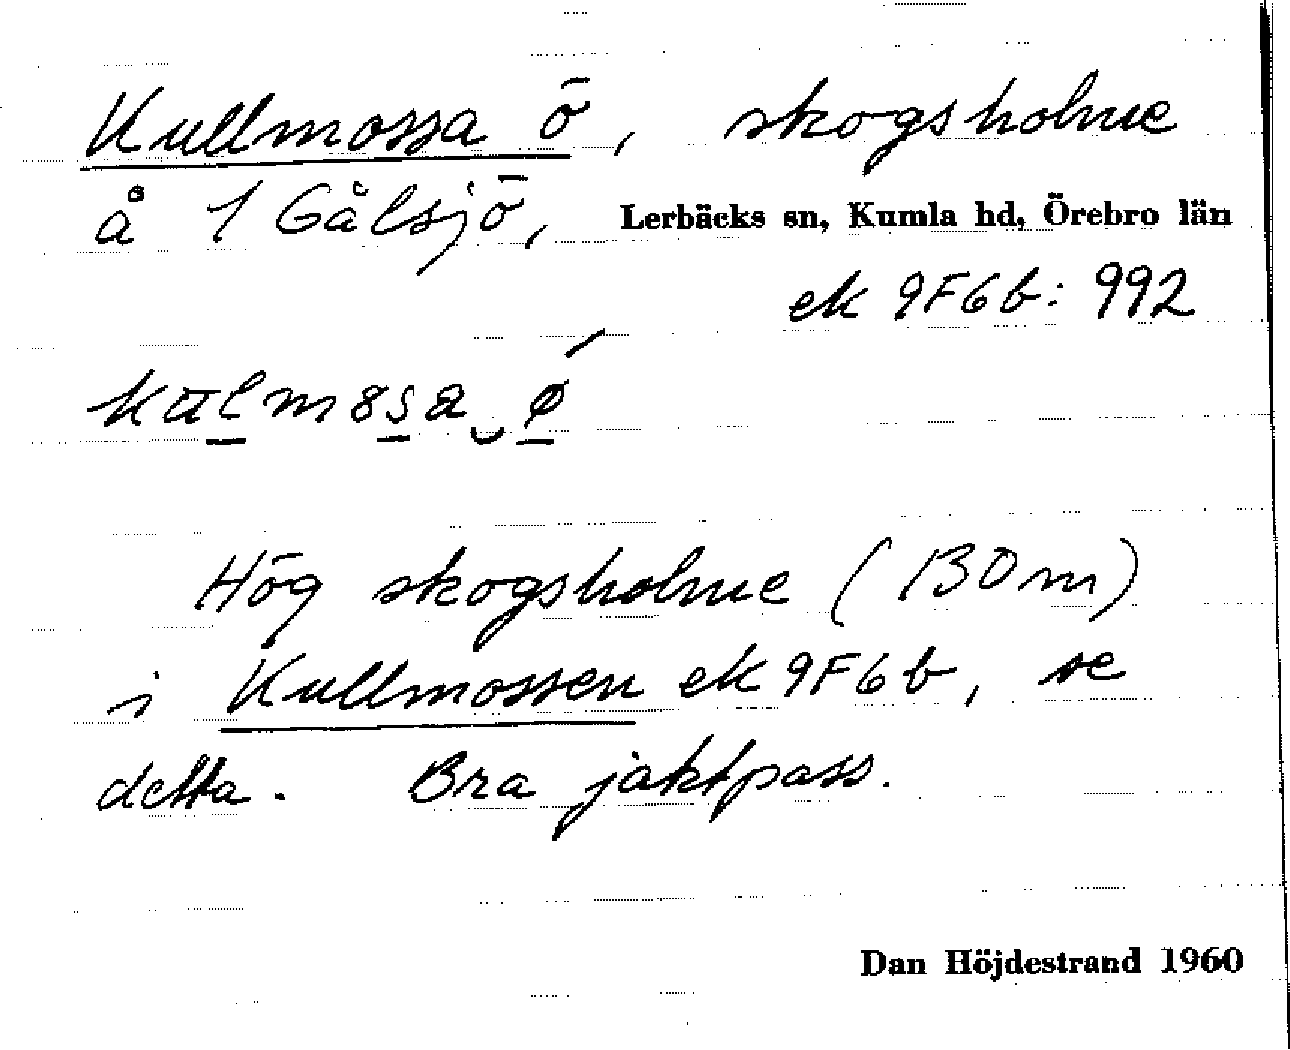 Kullmossa ö, skogsholme
å 1 Gålsjö, Lerbäcks sn, Kumla hd, Örebro län
ek 9F6b: 992
Hög skogsholme (130 m)
i Kullmossen ek 9F6b, se
detta. Bra jaktpass.
Dan Höjdestrand 1960